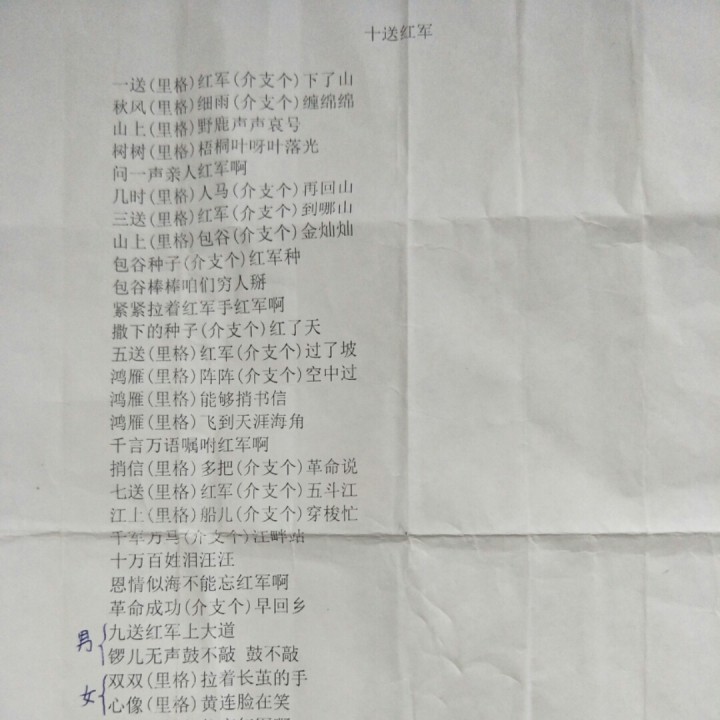 十送红军
一送(里格)红军(介支个)下了山
秋风(里格)细雨(介支个)缠绵绵
山上(里格)野鹿声声哀号
树树(里格)梧桐叶呀叶落光
问一声亲人红军啊
几时(里格)人马(介支个)再回山
三送(里格)红军(介支个)到哪山
山上(里格)包谷(介支个)金灿灿
包谷种子(介支个)红军种
包谷棒棒咱们穷人掰
紧紧拉着红军手红军啊
撒下的种子(介支个)红了天
五送(里格)红军(介支个)过了坡
鸿雁(里格)阵阵(介支个)空中过
鸿雁(里格)能够捎书信
鸿雁(里格)飞到天涯海角
千言万语嘱咐红军啊
捎信(里格)多把(介支个)革命说
七送(里格)红军(介支个)五斗江
江上(里格)船儿(介支个)穿梭忙
千军万马(介支个)江畔站
十万百姓泪汪汪
恩情似海不能忘红军啊
革命成功(介支个)早回乡
男
九送红军上大道
锣儿无声鼓不敲 鼓不敲
女
双双(里格)拉着长茧的手
心像(里格)黄连脸在笑